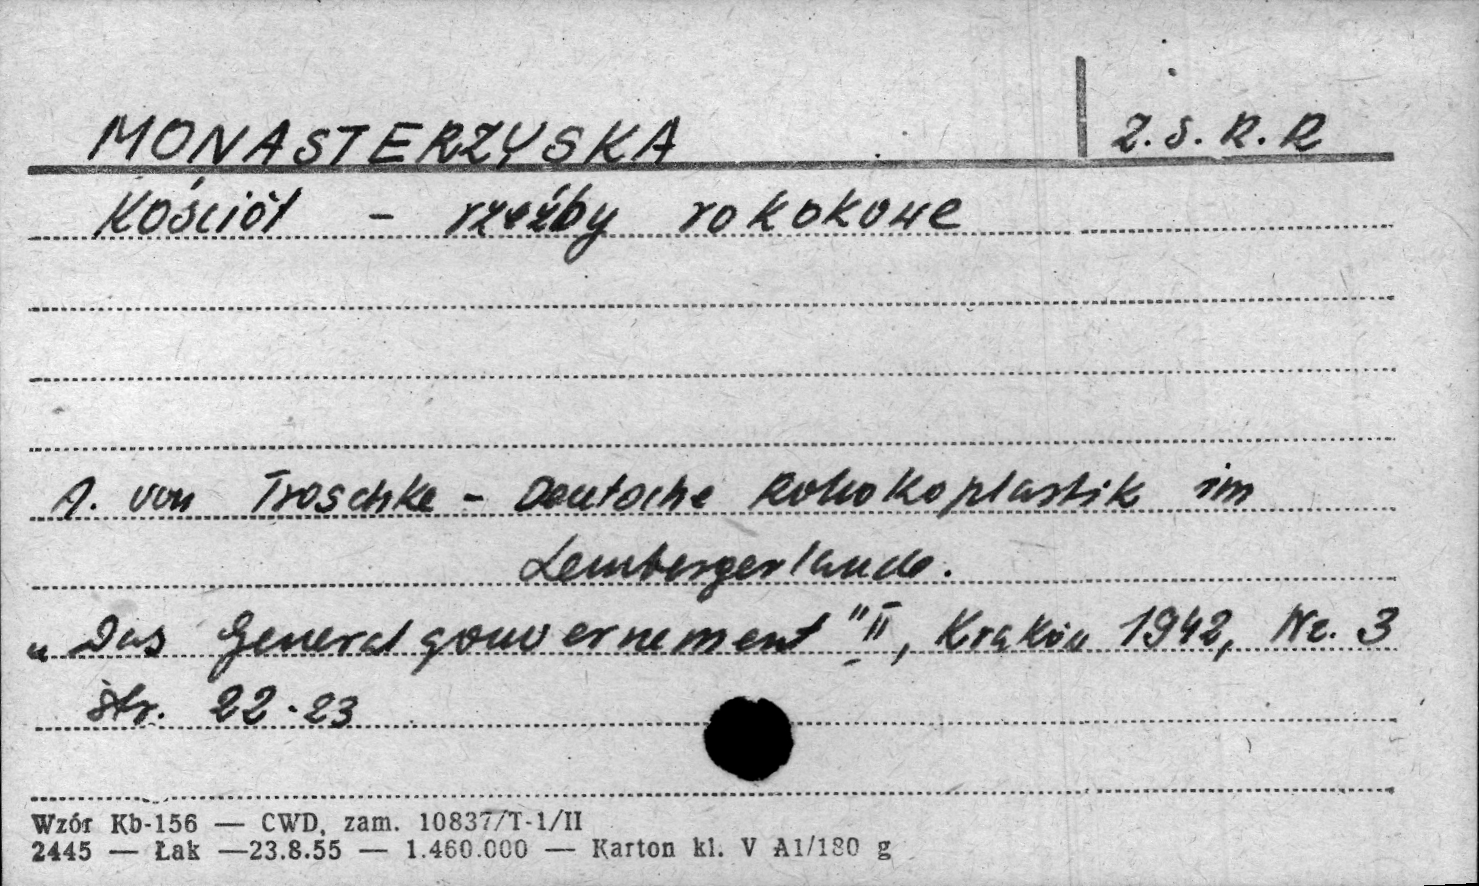 MONASTERZYSKA Z.S.R.R
Kościół - rzeźby rokokowe
A. von Troschke - Deutsche Rokokoplastik im
Lembergerlande.
„Das Generalgouvernement" II, Kraków 1942, Nr. 3
str. 22-23
Wzór Kb-156 — CWD, zam. 10837/T-1/II
2445 — Łak —23.8.55 — 1.460.000 — Karton kl. V A1/180 g